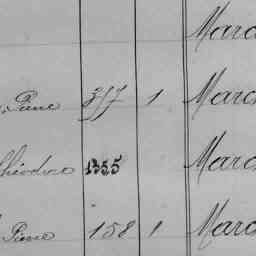 Marc
Pierre 317 1 Marc
Théodore 1355 Marc
Pierre 158 1 Marc